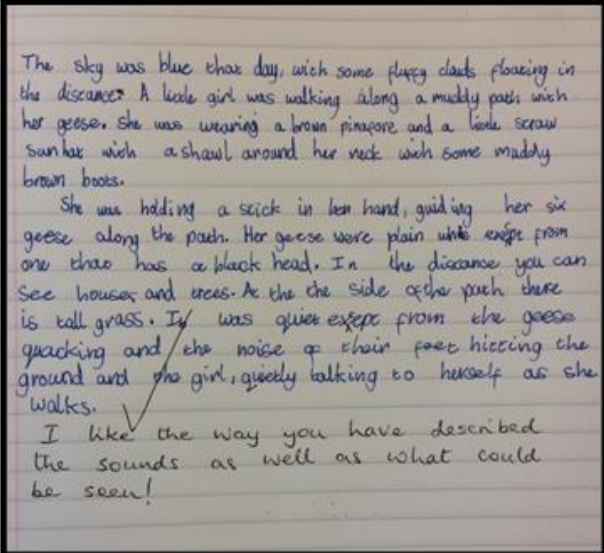 The sky was blue that day, with some fluffy clouds floating in
the distance. A little girl was walking along a muddy path with
her geese. She was wearing a brown pinafore and a little straw
sun hat with a shawl around her neck with some muddy
brown boots.
She was holding a stick in her hand, guiding her six
geese along the path. Her geese were plain white exept from
one that has a black head. In the distance you can
see houses and trees. At the the side of the path there
is tall grass. It was quiet exept from the geese
quacking and the noise of their feet hitting the
ground and the girl, quietly talking to herself as she
walks.
I like the way you have described
the sounds as well as what could
be seen!